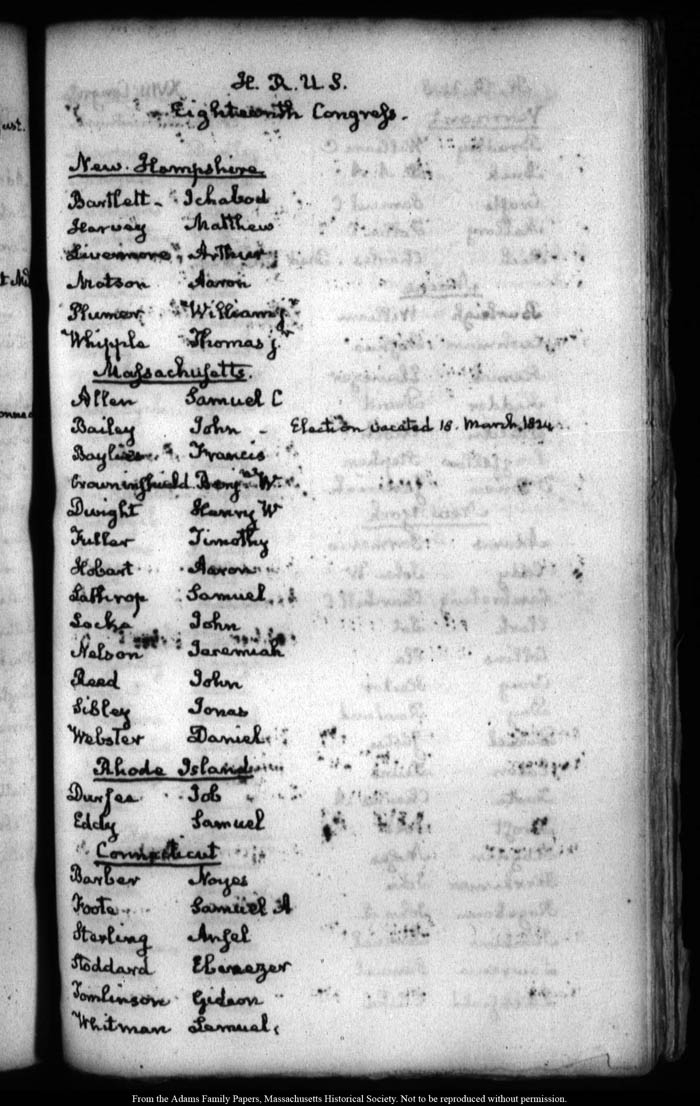 H. R. U. S.
Eighteenth Congress.
New Hampshire
Bartlett Ichabod
Harvey Matthew
Livermore Arthur
Matson Aaron
Plumer William j.
Whipple Thomas j.
Massachusetts.
Allen Samuel C
Bailey John - Election vacated 18. March, 1824.
Baylies Francis
Crowninshield Benj. W.
Dwight Henry W
Fuller Timothy
Hobart Aaron
Lathrop Samuel
Locke John
Nelson Jeremiah
Reed John
Sibley Jonas
Webster Daniel
Rhode Island
Durfee Job
Eddy Samuel
Connecticut
Barber Noyes
Foote Samuel A
Sterling Ansel
Stoddard Ebenezer
Tomlinson Gideon
Whitman Lemuel
From the Adams Family Papers, Massachusetts Historical Society. Not to be reproduced without permission.